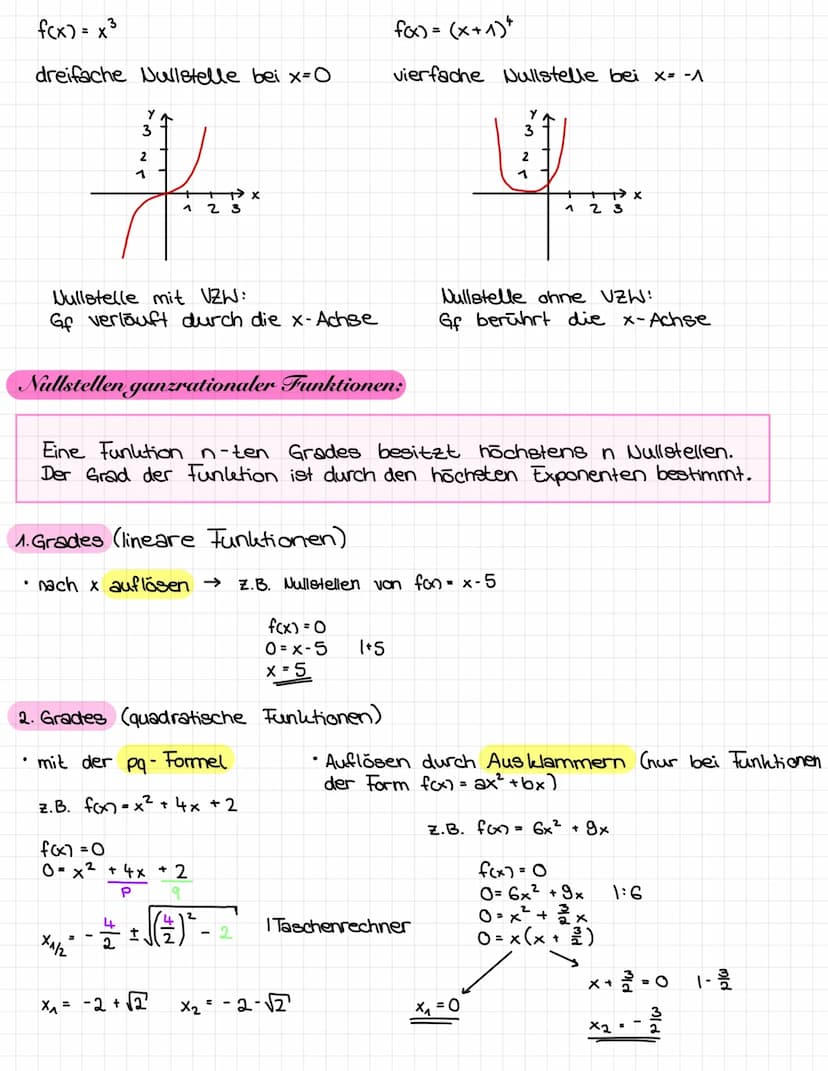 f(x) = x³
dreifache Nullstelle bei x=0
y
3
2
1
1 2 3
x
Nullstelle mit VZW:
Gf verläuft durch die x-Achse
f(x) = (x+1)⁴
vierfache Nullstelle bei x= -1
y
3
2
1
1 2 3
x
Nullstelle ohne VZW:
Gf berührt die x-Achse
Nullstellen ganzrationaler Funktionen:
Eine Funktion n-ten Grades besitzt höchstens n Nullstellen.
Der Grad der Funktion ist durch den höchsten Exponenten bestimmt.
1. Grades (lineare Funktionen)
• nach x auflösen → z.B. Nullstellen von f(x) = x-5
f(x) = 0
0 = x-5 |+5
x = 5
2. Grades (quadratische Funktionen)
• mit der pq-Formel
z.B. f(x) = x² + 4x + 2
f(x) = 0
0 = x² + 4x + 2
p q
x₁/₂ = - 4/2 ± √((4/2)² - 2) | Taschenrechner
x₁ = -2 + √2 x₂ = -2 - √2
• Auflösen durch Ausklammern (nur bei Funktionen
der Form f(x) = ax² + bx)
z.B. f(x) = 6x² + 9x
f(x) = 0
0 = 6x² + 9x |:6
0 = x² + 3/2 x
0 = x(x + 3/2)
x₁ = 0
x + 3/2 = 0 |- 3/2
x₂ = - 3/2